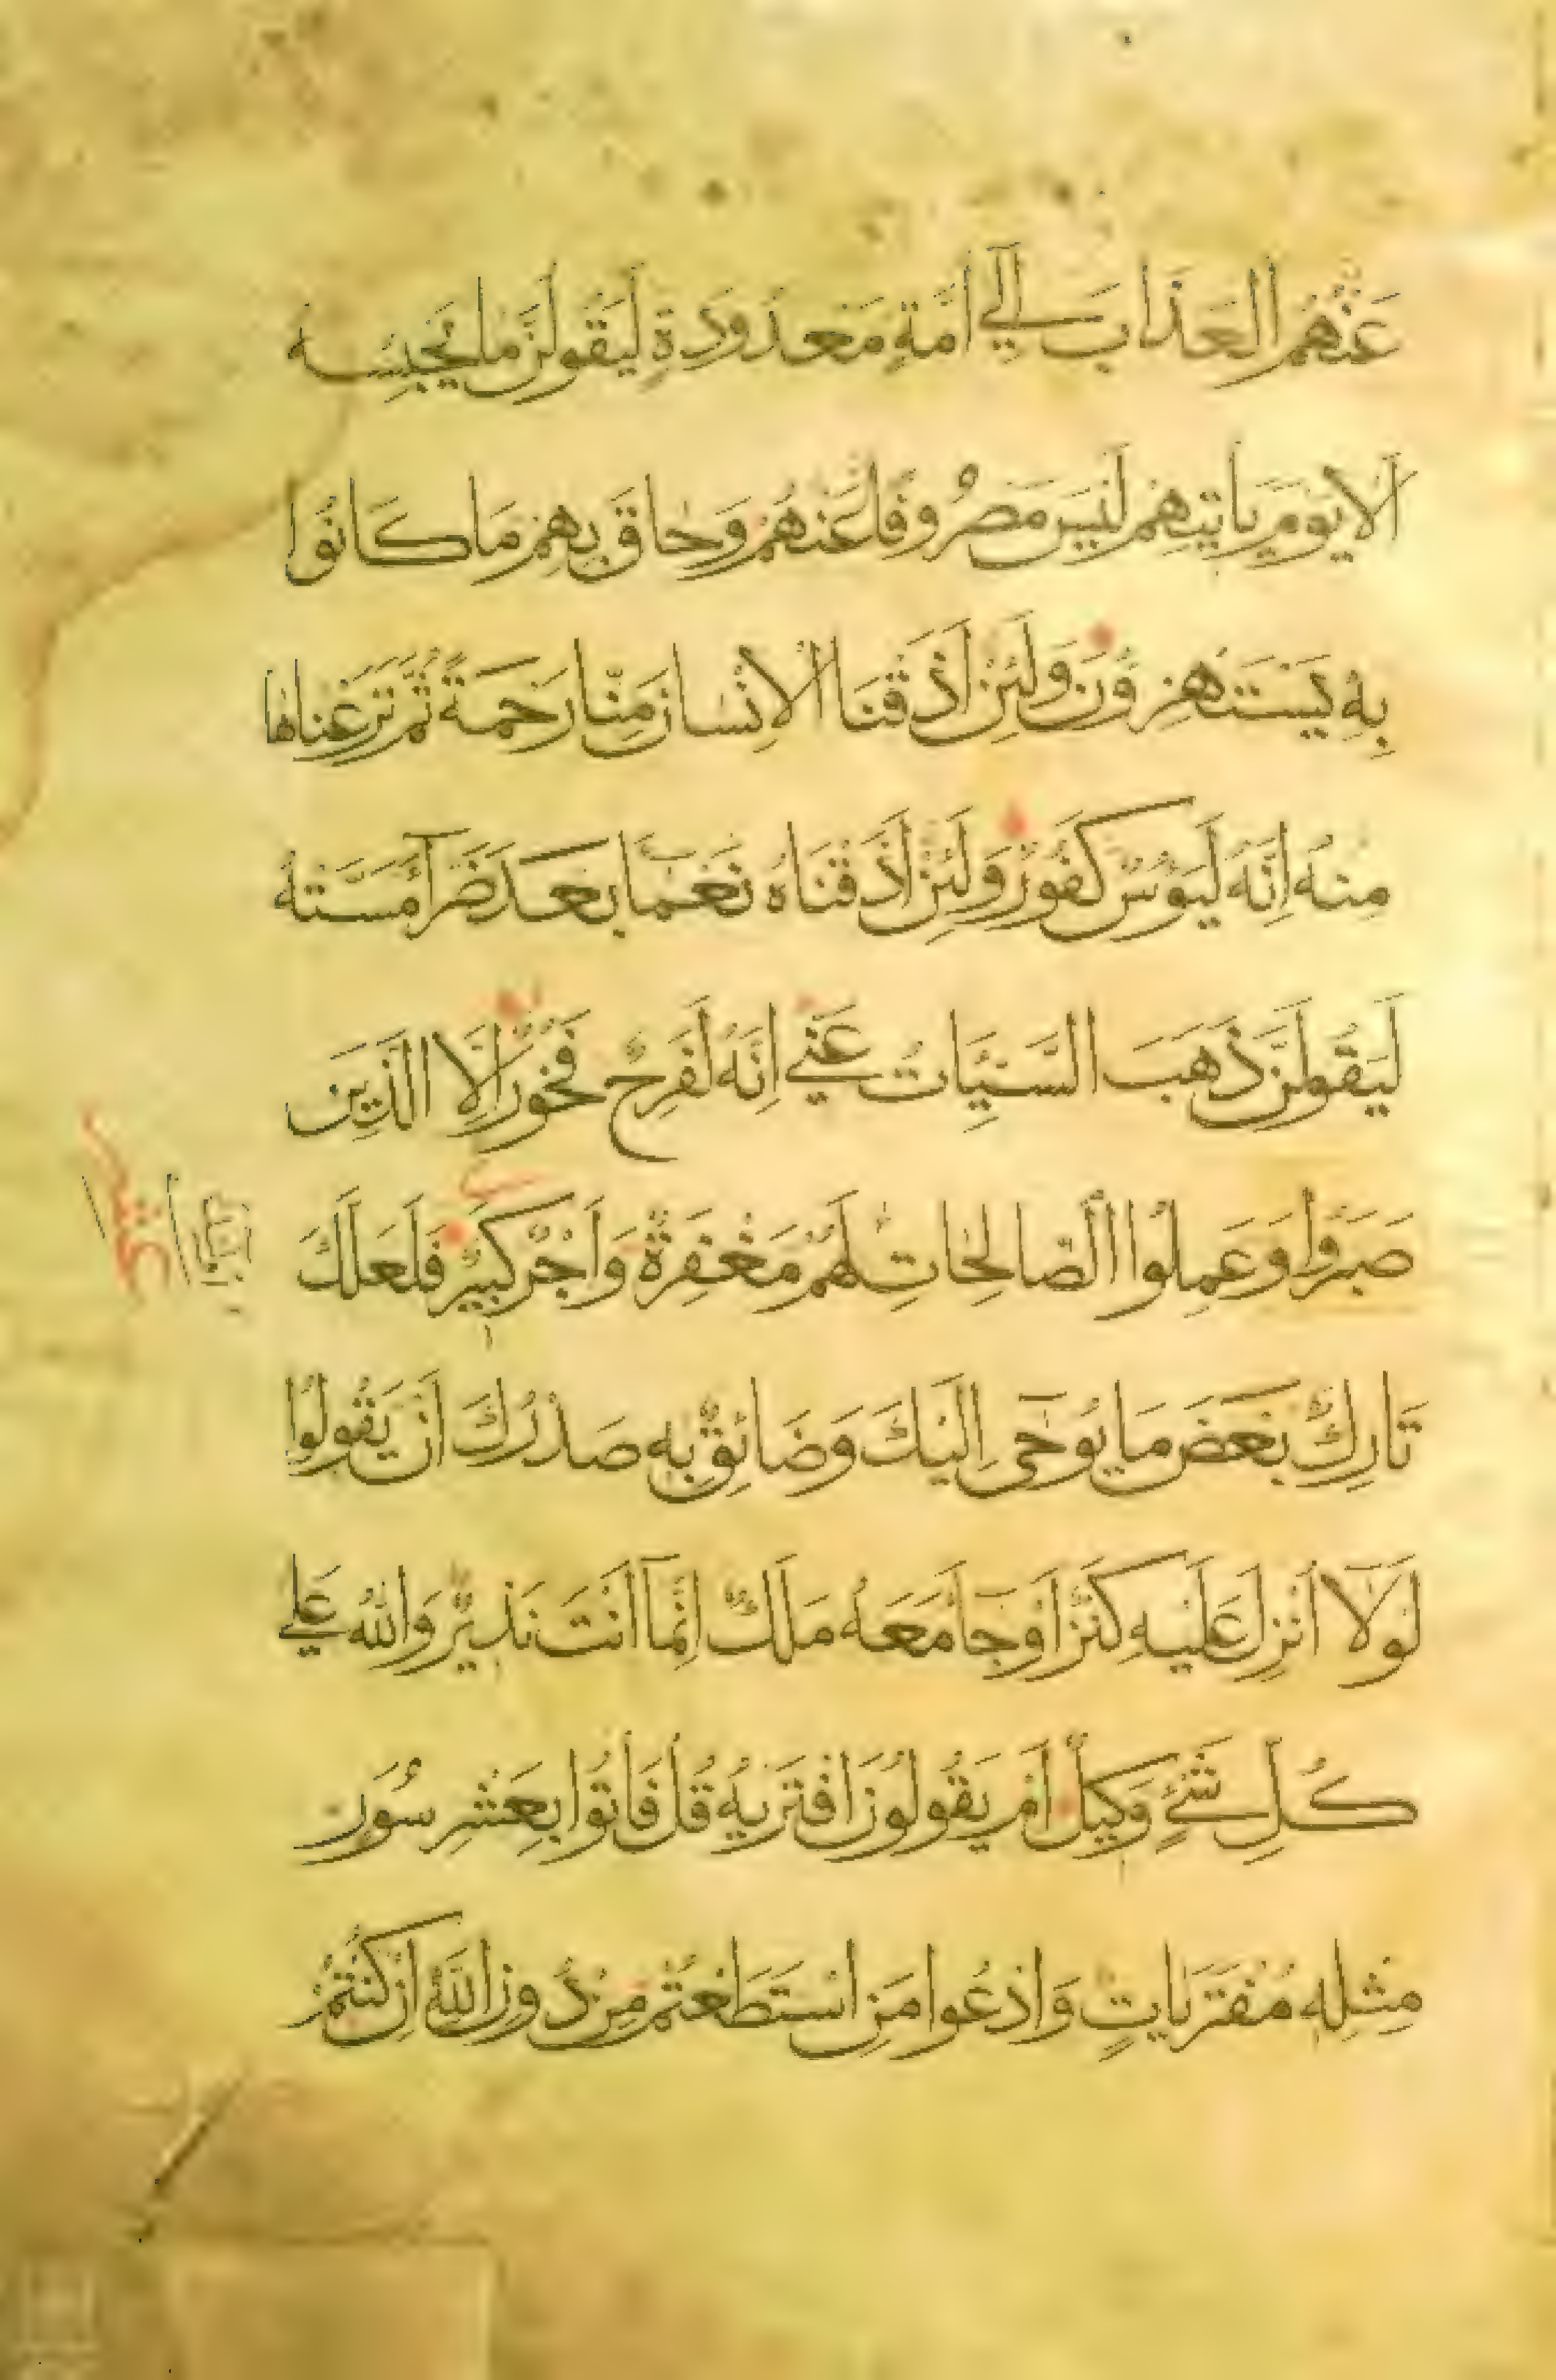 عَنْهُمُ العَذَابَ اِلَي اُمَّةٍ مَعْدُودَةٍ لَيَقُولُنَّ مَا يَحْبِسُه
اَلَا يَوْمَ يَاتِيهِمْ لَيْسَ مَصْرُوفًا عَنْهُمْ وَحَاقَ بِهِمْ مَا كَانُوا
بِهِ يَسْتَهْزِؤُنَ وَلَئِنْ اَذَقْنَا الْاِنْسَانَ مِنَّا رَحْمَةً ثُمَّ نَزَعْنَاهَا
مِنْهُ اِنَّهُ لَيَؤُسٌ كَفُورٌ وَلَئِنْ اَذَقْنَاهُ نَعْمَا بَعْدَ ضَرَّآ مَسَّتْهُ
لَيَقُولَنَّ ذَهَبَ السَّيِّئَاتُ عَنِّي اِنَّهُ لَفَرِحٌ فَخُورٌ اِلَّا الَّذِينَ
صَبَرُوا وَعَمِلُوا الصَّالِحَاتِ لَهُمْ مَغْفِرَةٌ وَاَجْرٌ كَبِيرٌ فَلَعَلَّكَ
تَارِكٌ بَعْضَ مَا يُوحٰى اِلَيْكَ وَضَائِقٌ بِهِ صَدْرُكَ اَنْ يَقُولُوا
لَوْلَآ اُنْزِلَ عَلَيْهِ كَنْزٌ اَوْ جَآ مَعَهُ مَلَكٌ اِنَّمَآ اَنْتَ نَذِيرٌ وَاللّٰهُ عَلَي
كُلِّ شَيْءٍ وَكِيلٌ اَمْ يَقُولُونَ افْتَرَيهُ قُلْ فَاتُوا بِعَشْرِ سُوَرٍ
مِثْلِهِ مُفْتَرَيَاتٍ وَادْعُوا مَنِ اسْتَطَعْتُمْ مِنْ دُونِ اللّٰهِ اِنْ كُنْتُمْ